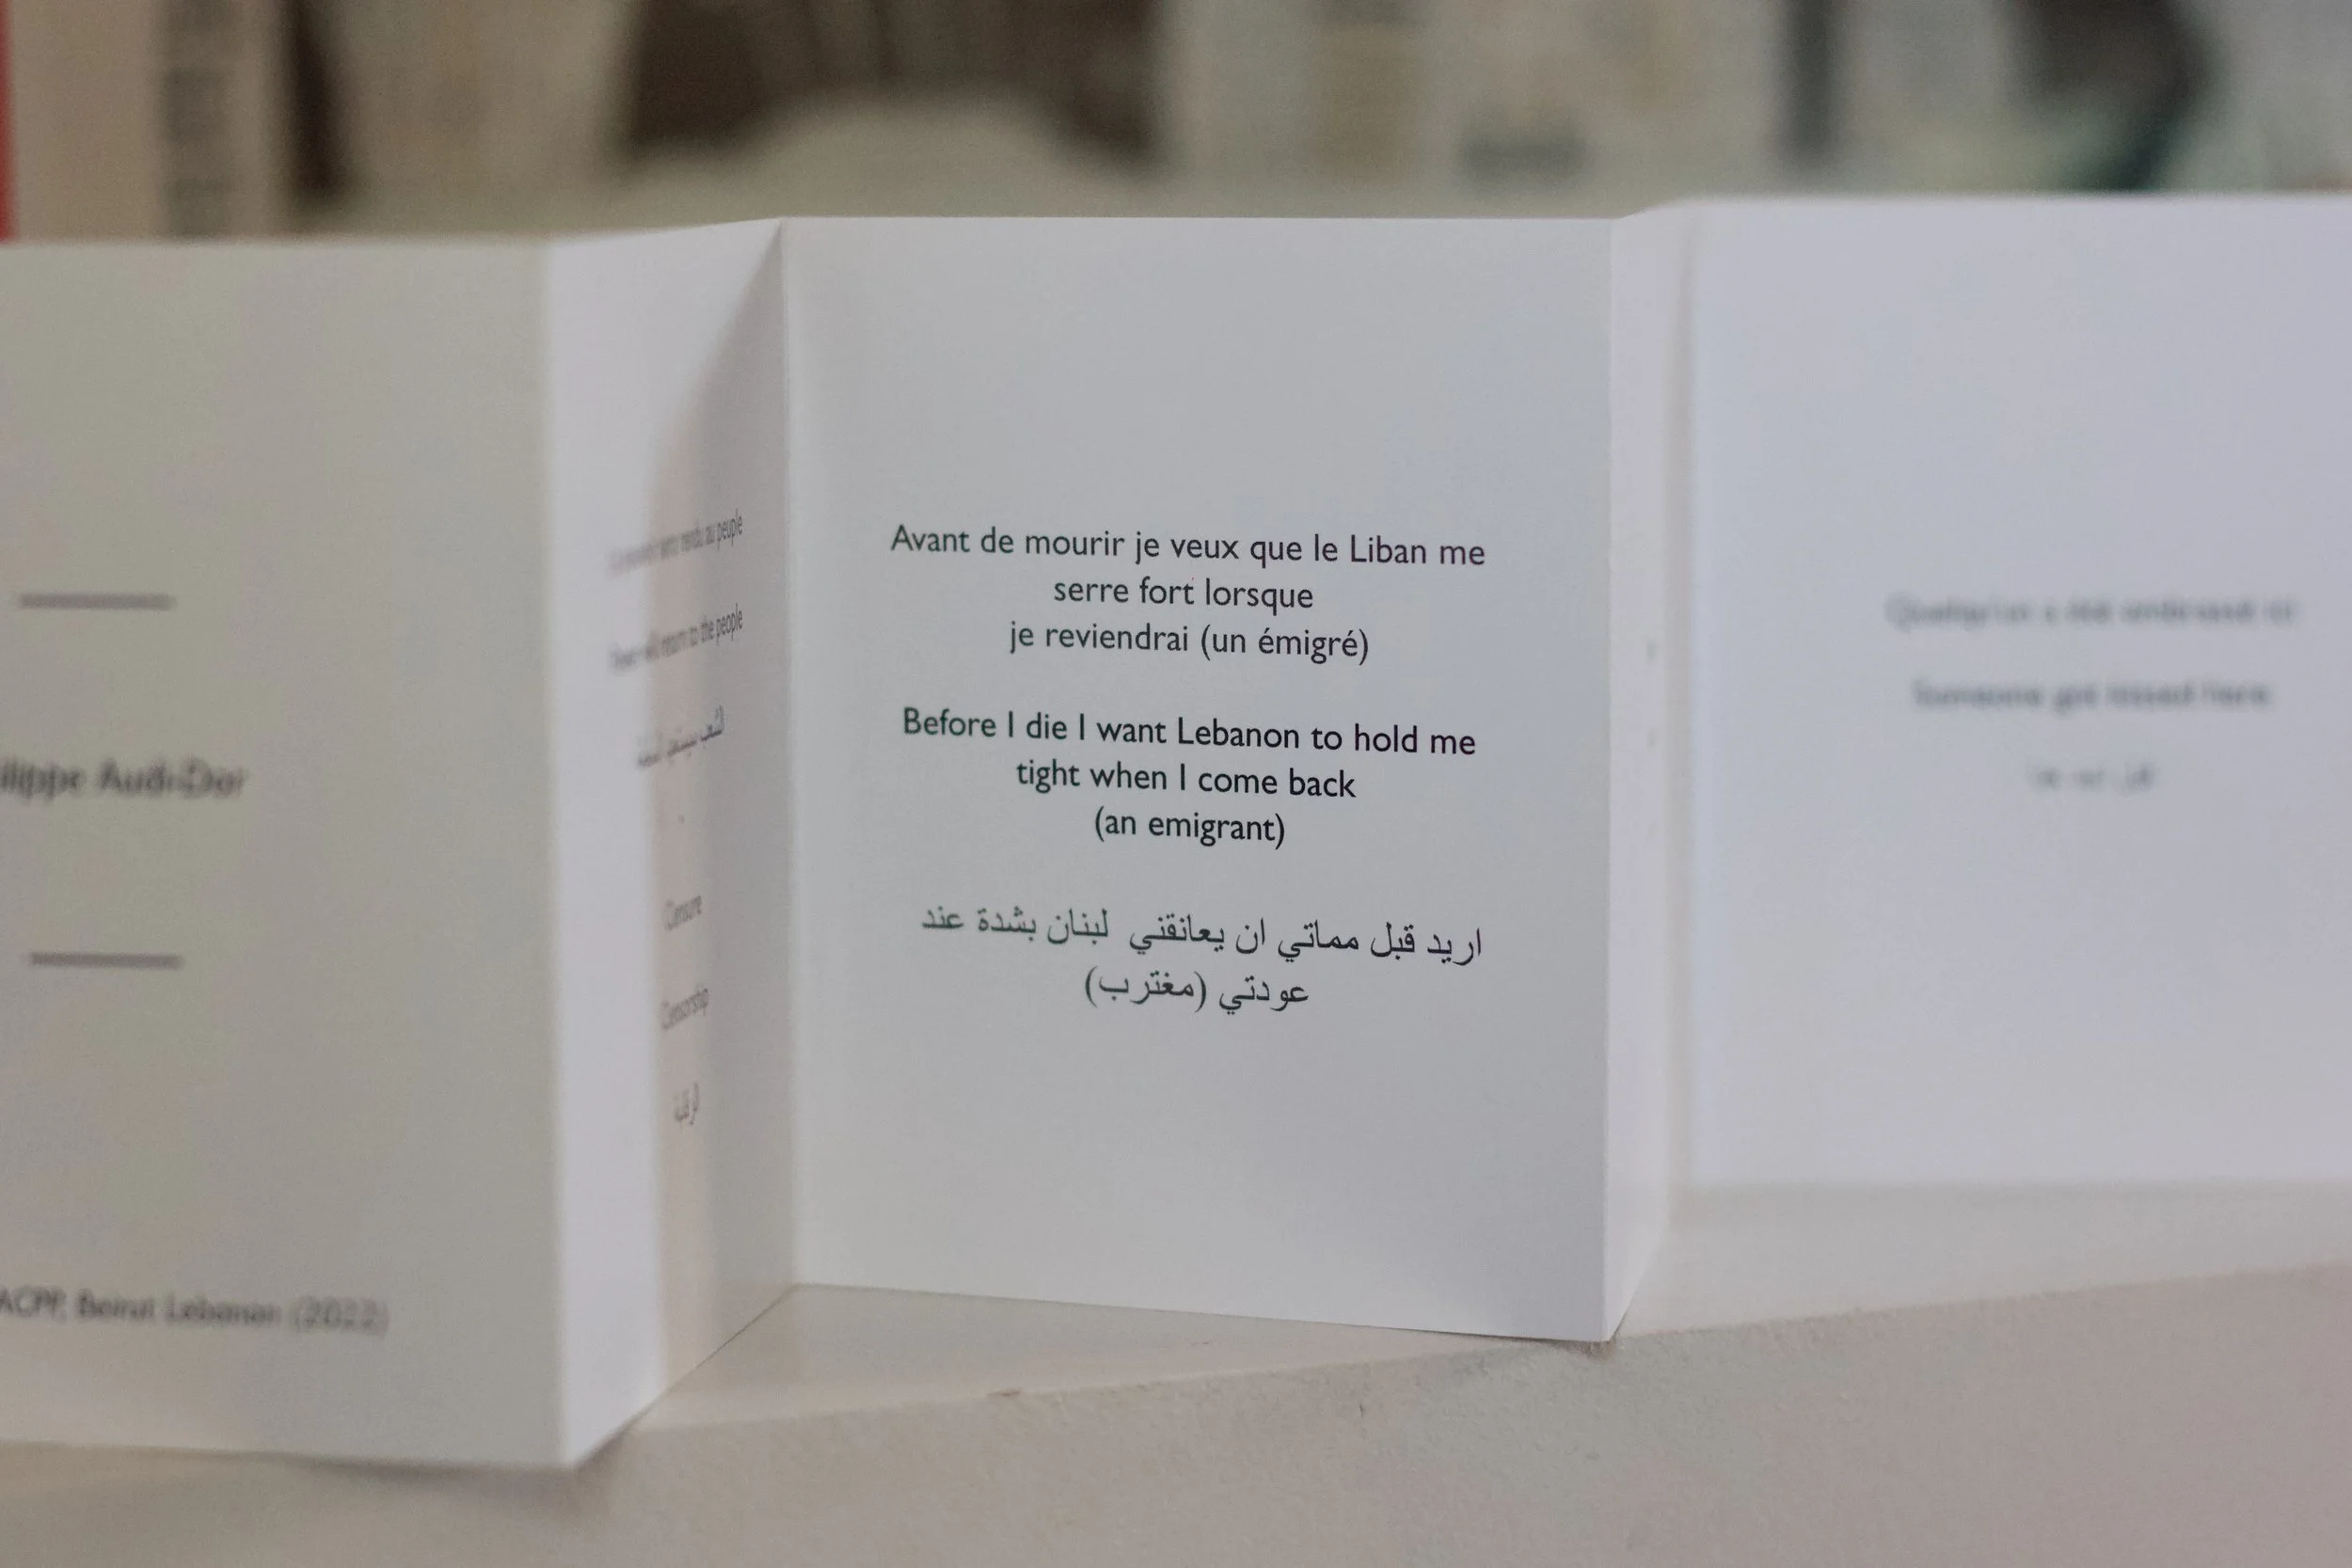 Audi-Dor
ACPP, Beirut Lebanon (2022)
rendu au peuple
return to the people
Censure
Censorship
Avant de mourir je veux que le Liban me
serre fort lorsque
je reviendrai (un émigré)
Before I die I want Lebanon to hold me
tight when I come back
(an emigrant)
اريد قبل مماتي ان يعانقني لبنان بشدة عند
عودتي (مغترب)
Someone got kissed here